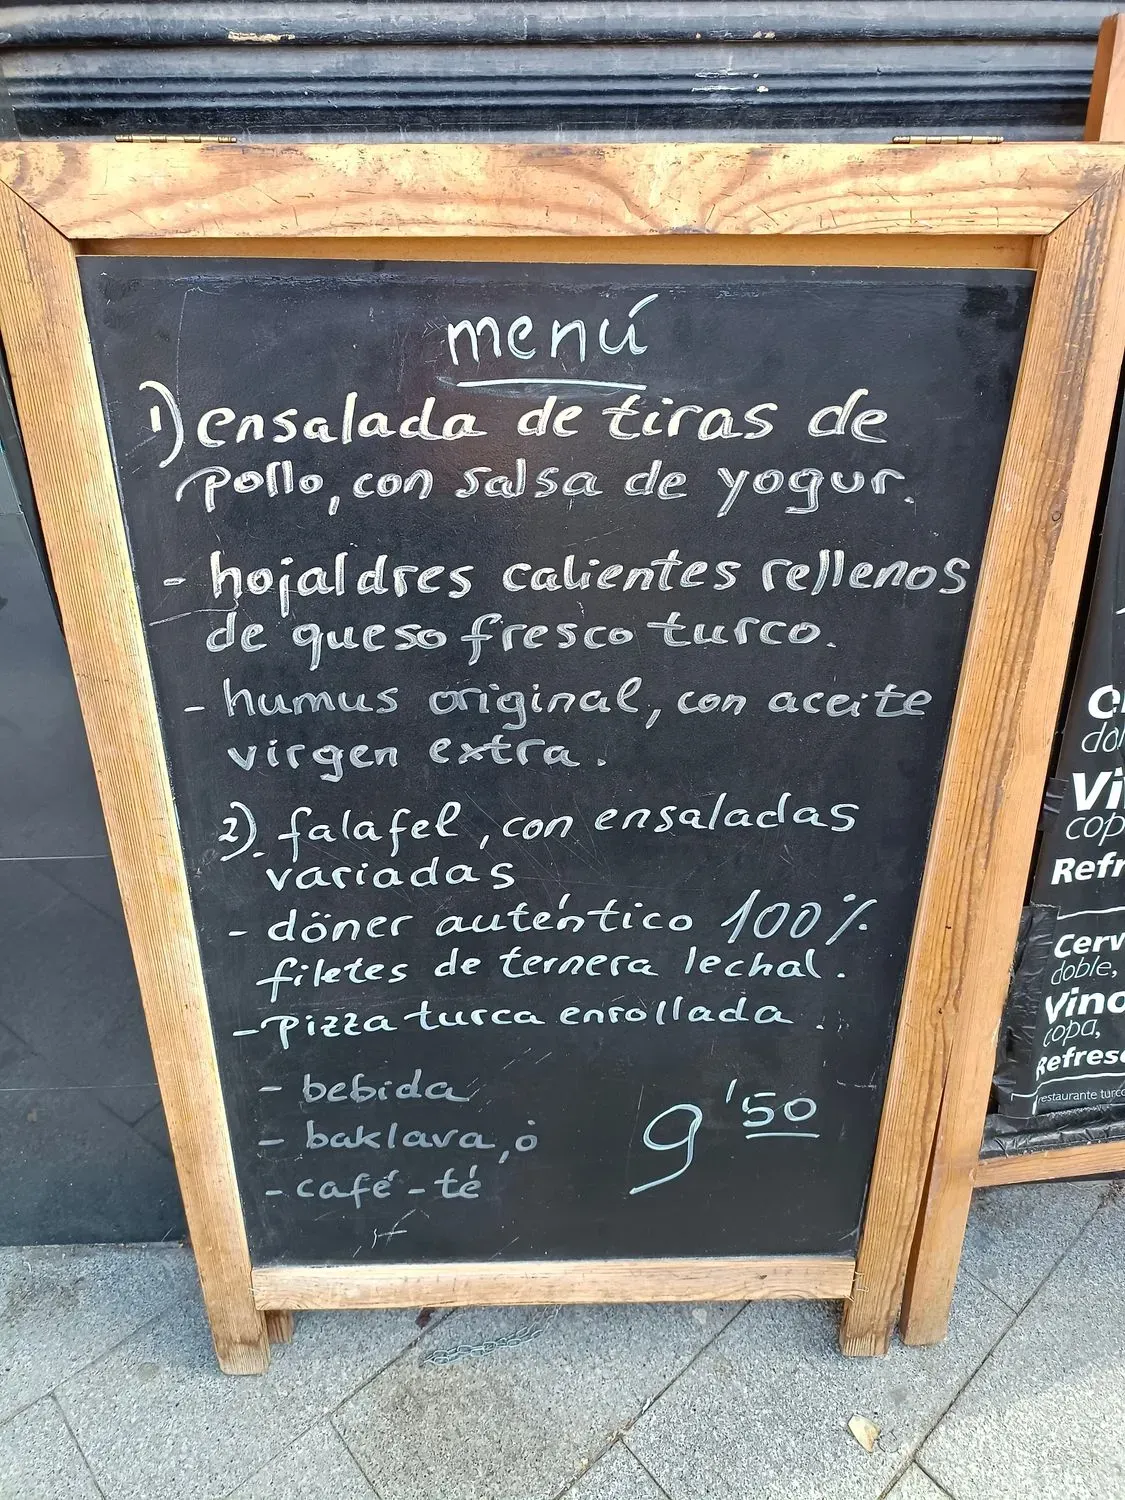 menú
1) ensalada de tiras de
pollo, con salsa de yogur.
- hojaldres calientes rellenos
de queso fresco turco.
- humus original, con aceite
virgen extra.
2). falafel, con ensaladas
variadas
- döner auténtico 100%
filetes de ternera lechal.
- pizza turca enrollada.
- bebida
- baklava, ó
- café - té
9'50
copa,
Refr
Cerv
doble,
Vino
copa,
Refresc
restaurante turco